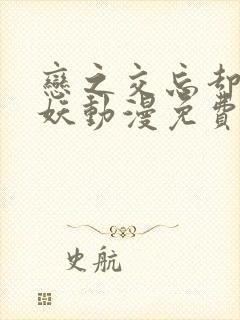 戀之交忘却
妖動漫免費
史航